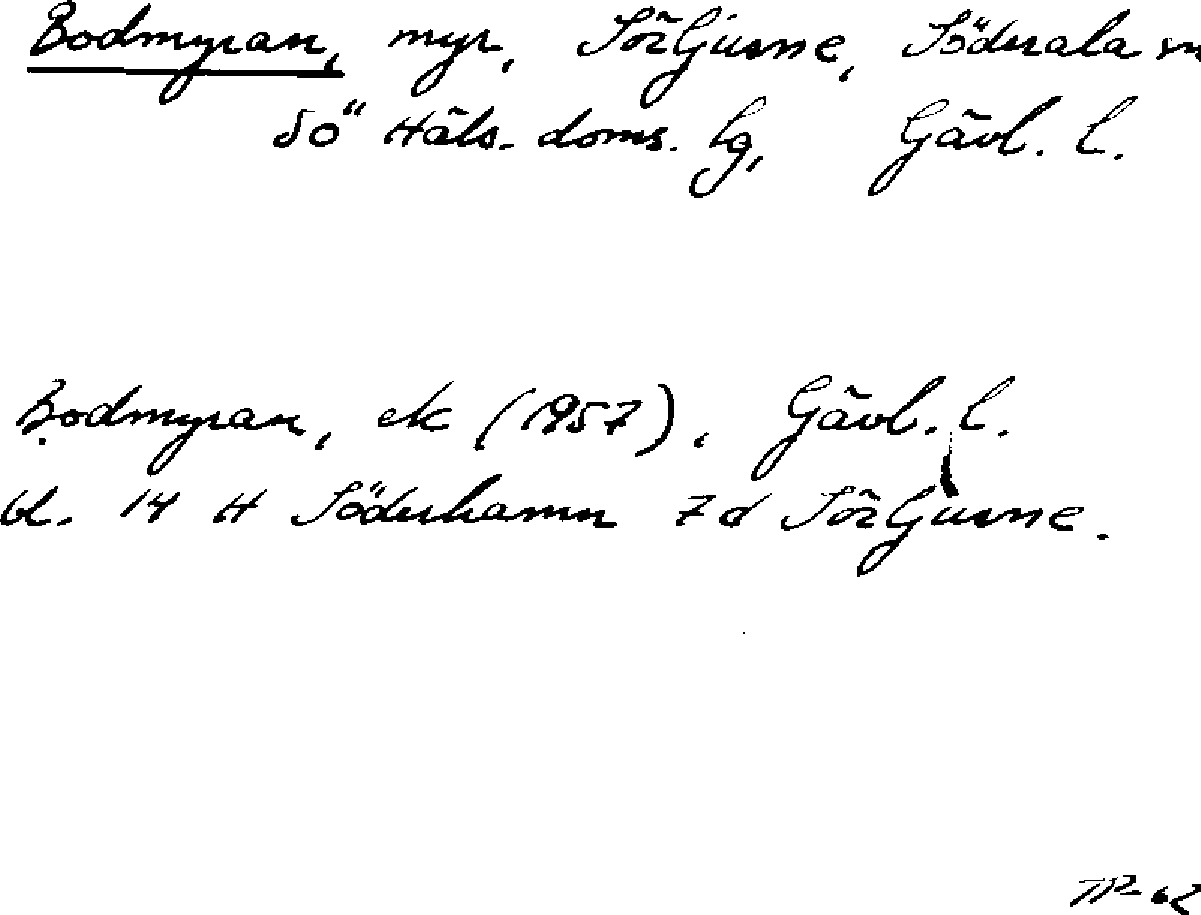 Bodmyran, myr, Sörljusne, Söderala
SÖ Häls. doms. lg, Gävl. l.
Bodmyran, ek (1957), Gävl. l.
bl. 14 H Söderhamn 7d Sörljusne.